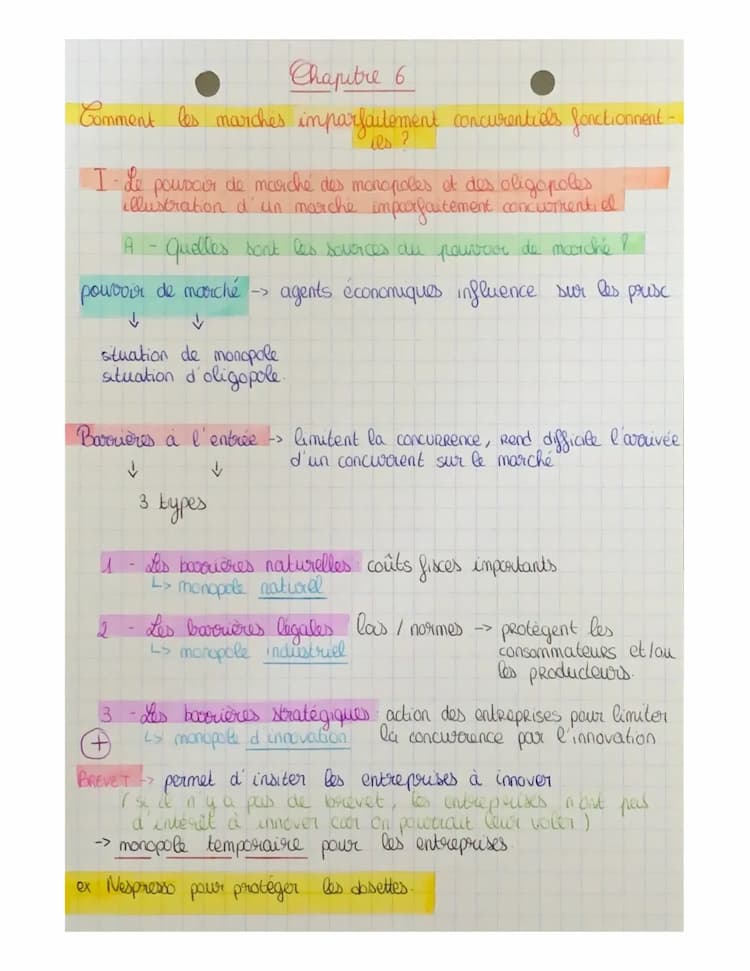 Chapitre 6
Comment les marches imparfaitement concurentiels fonctionnent-
ils ?
I - Le pouvoir de marché des monopoles et des oligopoles
illustration d'un marché imparfaitement concurrentiel
A - Quelles sont les sources du pouvoir de marché ?
pouvoir de marché -> agents économiques influence sur les prisc
↓ ↓
situation de monopole
situation d'oligopole.
Barrières à l'entrée -> limitent la concurrence, rend difficile l'arrivée
d'un concurrent sur le marché
↓ ↓
3 types
1 - Les barrières naturelles : coûts fisces importants
↳ monopole naturel
2 - Les barrières légales lois / normes -> protègent les
↳ monopole industriel consommateurs et/ou
les producteurs.
3 - Les barrières stratégiques : action des entreprises pour limiter
+ ↳ monopole d'innovation la concurrence par l'innovation
BREVET -> permet d'insiter les entreprises à innover
(si il n'y a pas de brevet, les entreprises n'ont pas
d'intérêt à innover car on pourrait leur voler)
-> monopole temporaire pour les entreprises
ex Nespresso pour protéger les dosettes.